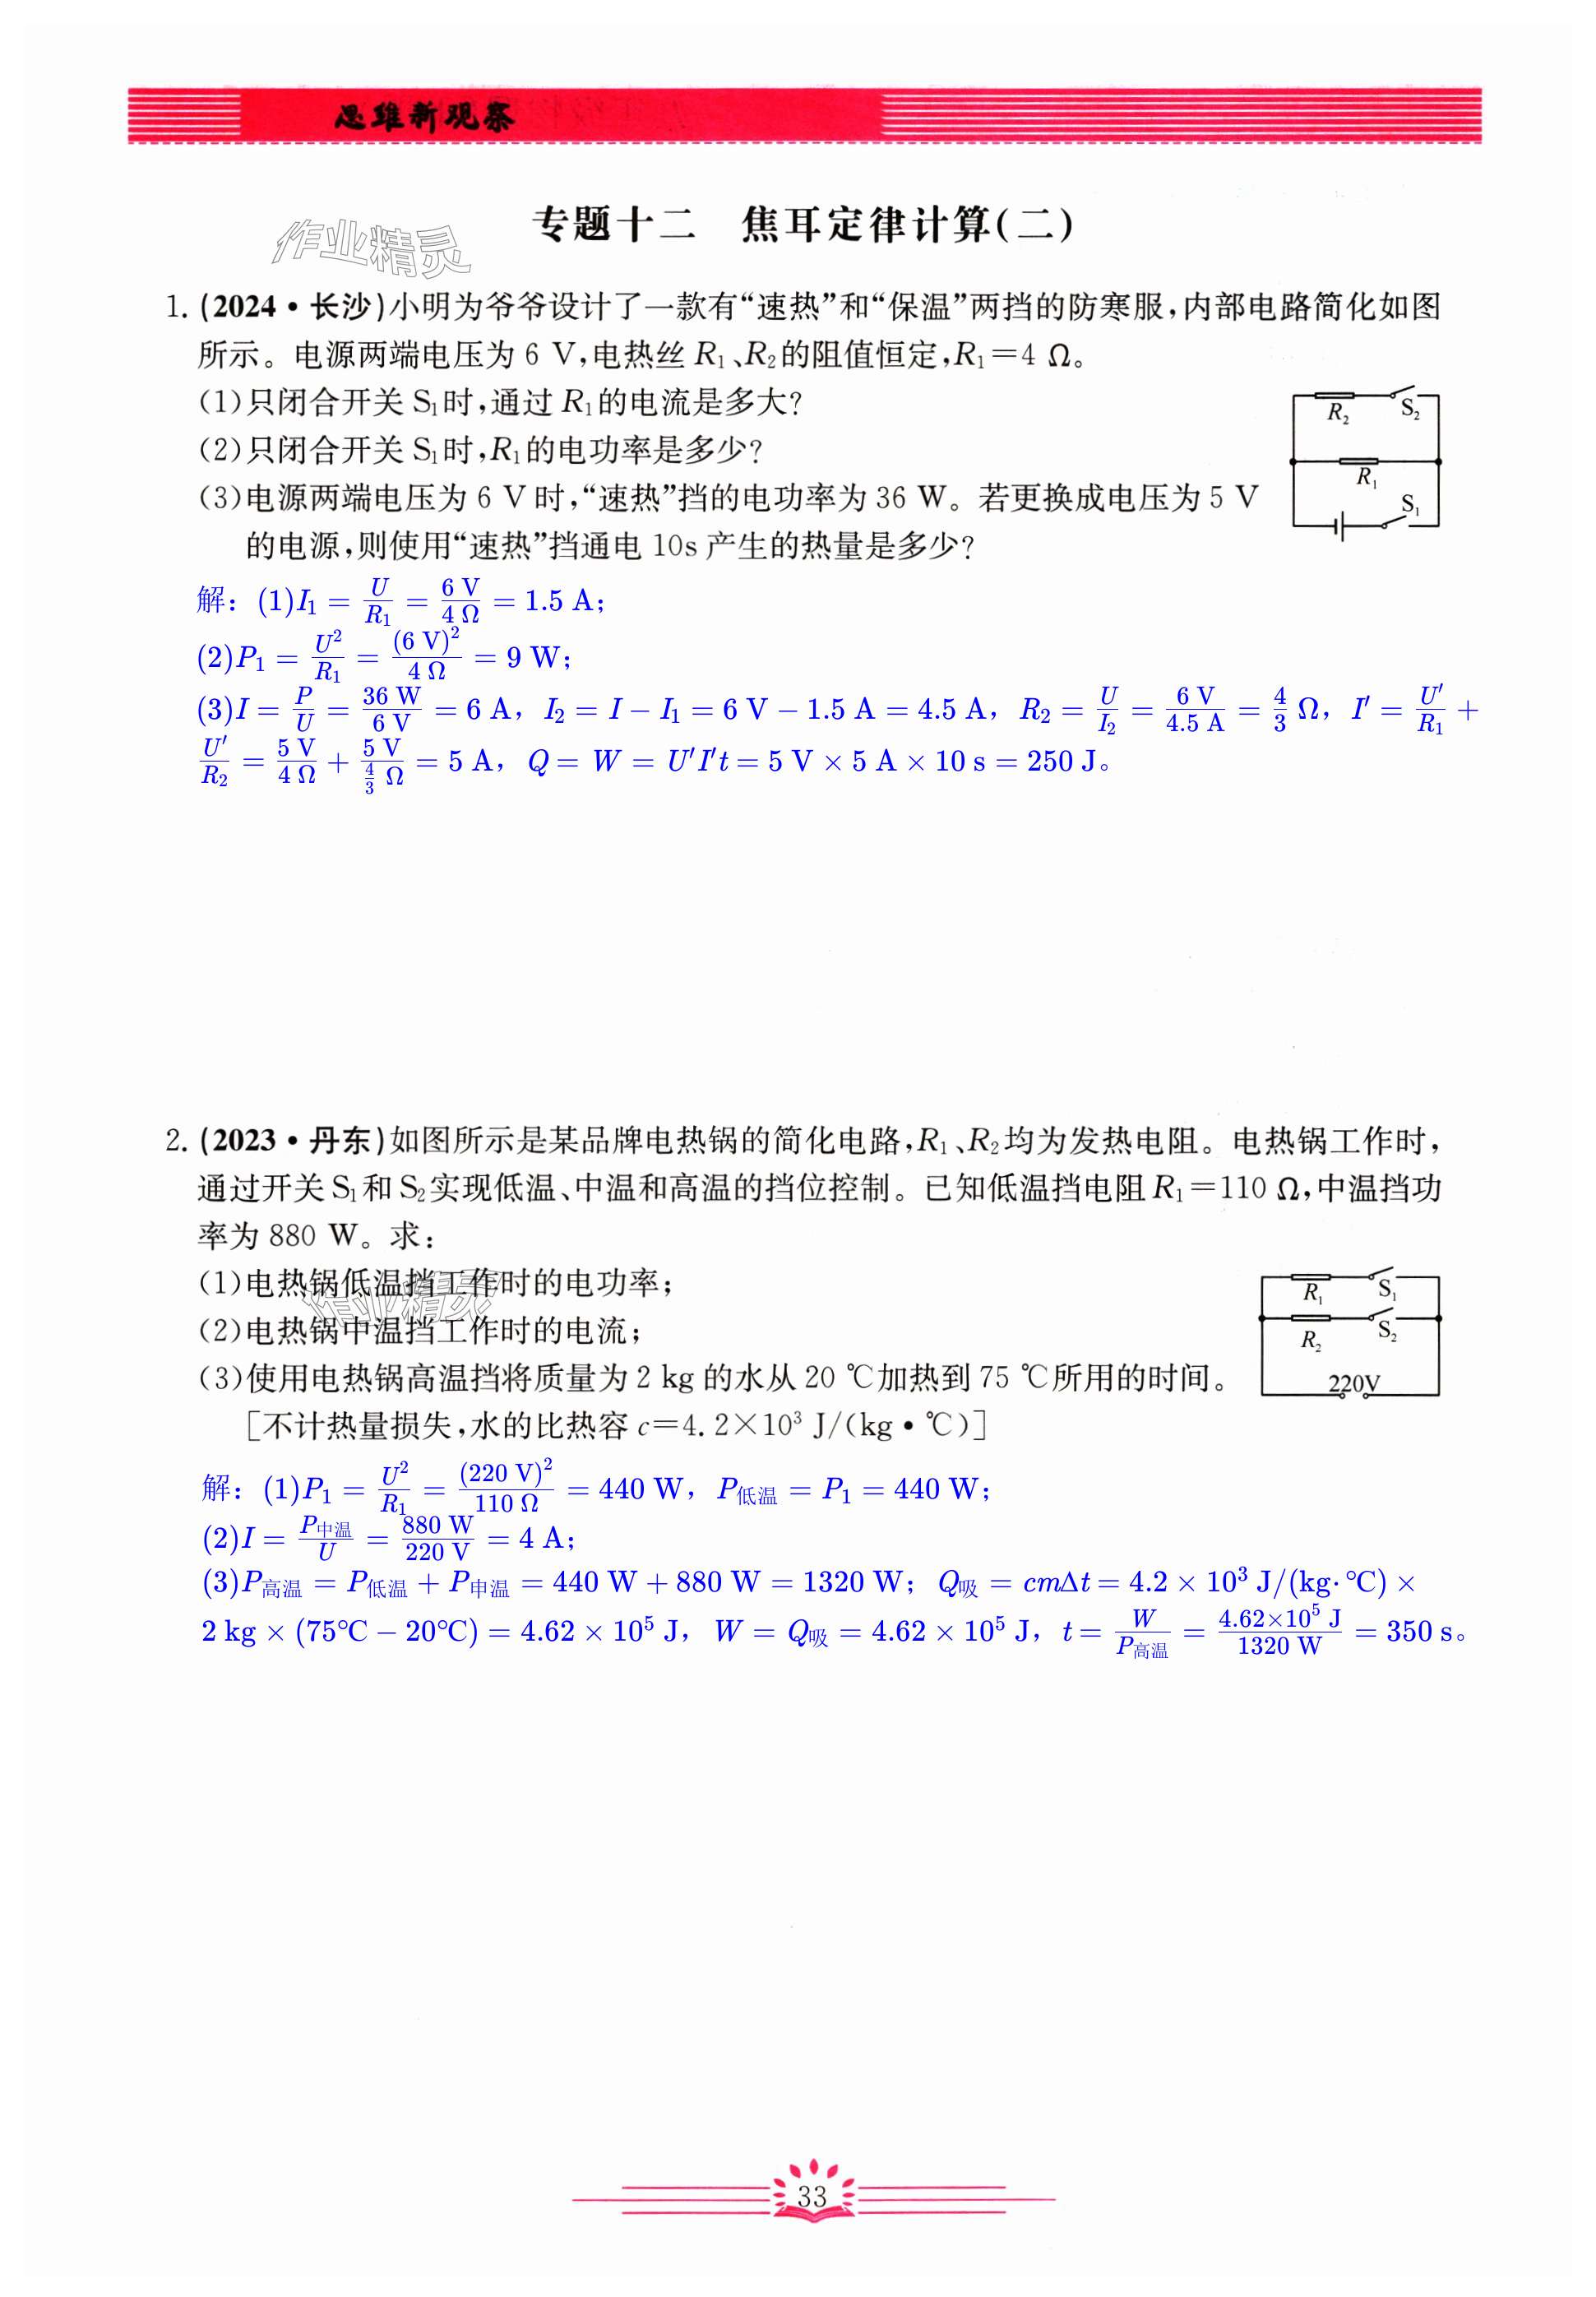 思维新观察
专题十二 焦耳定律计算(二)
作业精灵
1. (2024·长沙)小明为爷爷设计了一款有“速热”和“保温”两挡的防寒服,内部电路简化如图
所示。电源两端电压为 6 V,电热丝 R₁、R₂的阻值恒定,R₁=4 Ω。
(1)只闭合开关 S₁时,通过 R₁的电流是多大?
(2)只闭合开关 S₁时,R₁的电功率是多少?
(3)电源两端电压为 6 V 时,“速热”挡的电功率为 36 W。若更换成电压为 5 V
的电源,则使用“速热”挡通电 10s 产生的热量是多少?
R₂ S₂
R₁
S₁
解：(1)I₁ = U/R₁ = 6 V/4 Ω = 1.5 A；
(2)P₁ = U²/R₁ = (6 V)²/4 Ω = 9 W；
(3)I = P/U = 36 W/6 V = 6 A，I₂ = I − I₁ = 6 V − 1.5 A = 4.5 A，R₂ = U/I₂ = 6 V/4.5 A = 4/3 Ω，I′ = U′/R₁ +
U′/R₂ = 5 V/4 Ω + 5 V/(4/3 Ω) = 5 A，Q = W = U′I′t = 5 V × 5 A × 10 s = 250 J。
2. (2023·丹东)如图所示是某品牌电热锅的简化电路,R₁、R₂均为发热电阻。电热锅工作时,
通过开关 S₁和 S₂实现低温、中温和高温的挡位控制。已知低温挡电阻 R₁=110 Ω,中温挡功
率为 880 W。求:
(1)电热锅低温挡工作时的电功率;
作业精灵
(2)电热锅中温挡工作时的电流;
(3)使用电热锅高温挡将质量为 2 kg 的水从 20 ℃加热到 75 ℃所用的时间。
[不计热量损失,水的比热容 c=4.2×10³ J/(kg·℃)]
R₁ S₁
R₂ S₂
220V
解：(1)P₁ = U²/R₁ = (220 V)²/110 Ω = 440 W，P低温 = P₁ = 440 W；
(2)I = P中温/U = 880 W/220 V = 4 A；
(3)P高温 = P低温 + P申温 = 440 W + 880 W = 1320 W；Q吸 = cmΔt = 4.2 × 10³ J/(kg·℃) ×
2 kg × (75℃ − 20℃) = 4.62 × 10⁵ J，W = Q吸 = 4.62 × 10⁵ J，t = W/P高温 = 4.62×10⁵ J/1320 W = 350 s。
33